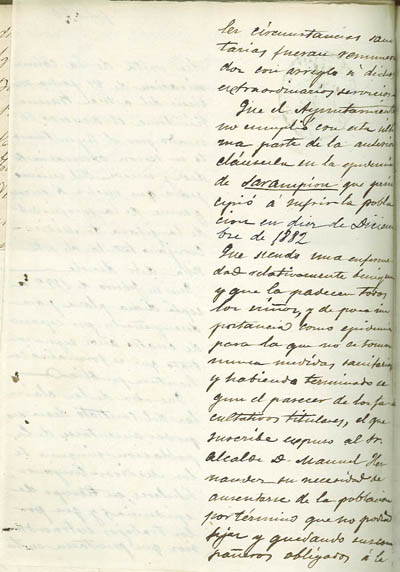 les circunstancias sani
tarias fueran remunera
dos con arreglo á dichos
extraordinarios servicios.
Que el Ayuntamiento
no cumplió con esta ulti
ma parte de la anterior
cláusula en la epidemia
de Sarampion que prin
cipió a sufrir la pobla
cion en diez de Diciem
bre de 1882
Que siendo una enferme
dad relativamente benigna
y que la padecen todos
los niños, y de poca im
portancia como epidemia
para la que no se toman
nunca medidas sanitarias
y habiendo terminado se
gun el parecer de los fa
cultativos titulares, el que
suscribe expuso al Sr.
Alcalde D. Manuel Her
nandez su necesidad de
ausentarse de la poblacion
por término que no podia
fijar y quedando sus com
pañeros obligados á la